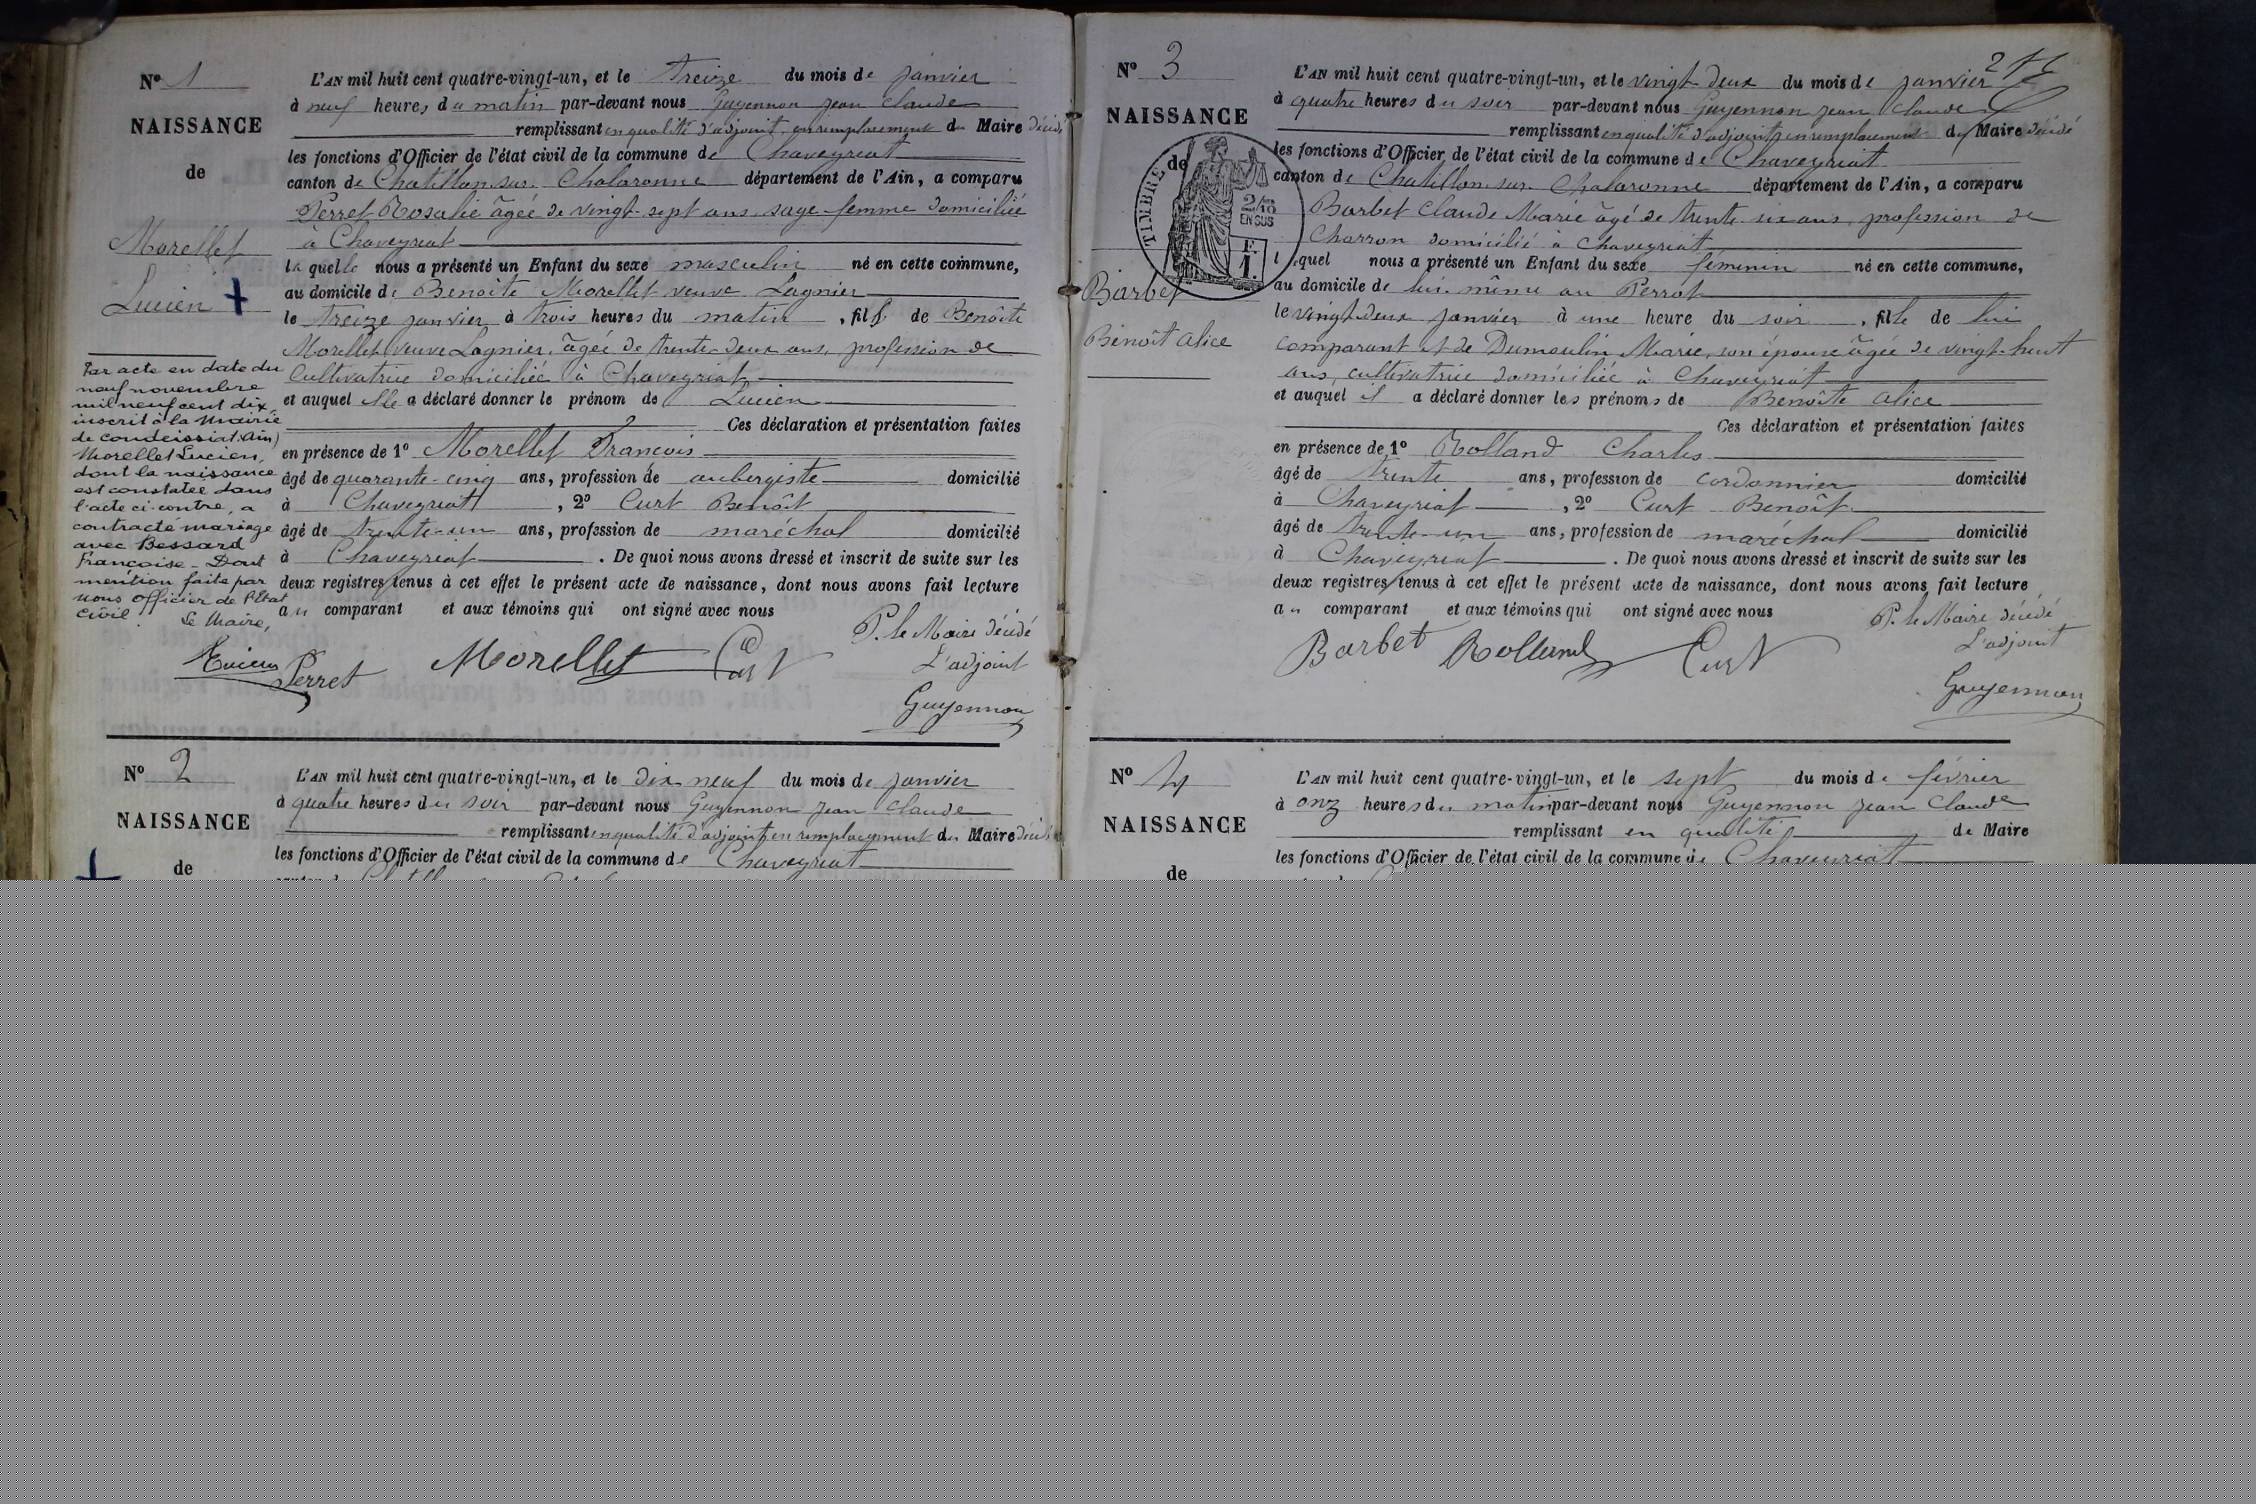 N° 1
NAISSANCE
de
Morellet
Lucien +
L'AN mil huit cent quatre-vingt-un, et le treize du mois de janvier
à neuf heures du matin par-devant nous Guyennon Jean Claude
remplissant en qualité d'adjoint en remplacement du Maire décédé
les fonctions d'Officier de l'état civil de la commune de Chaveyriat
canton de Chatillon sur Chalaronne département de l'Ain, a comparu
Perret Rosalie âgée de vingt-sept ans sage-femme domiciliée
à Chaveyriat
laquelle nous a présenté un Enfant du sexe masculin né en cette commune,
au domicile de Benoîte Morellet veuve Lagnier
le treize janvier à trois heures du matin, fils de Benoîte
Morellet veuve Lagnier, âgée de trente-deux ans, profession de
Cultivatrice domiciliée à Chaveyriat
et auquel elle a déclaré donner le prénom de Lucien
Ces déclaration et présentation faites
en présence de 1° Morellet François
âgé de quarante-cinq ans, profession de aubergiste domicilié
à Chaveyriat, 2° Curt Benoît
âgé de trente-un ans, profession de maréchal domicilié
à Chaveyriat. De quoi nous avons dressé et inscrit de suite sur les
deux registres tenus à cet effet le présent acte de naissance, dont nous avons fait lecture
au comparant et aux témoins qui ont signé avec nous
Par acte en date du
neuf novembre
mil neuf cent dix,
inscrit à la Mairie
de condeissiat (Ain)
Morellet Lucien,
dont la naissance
est constatée dans
l'acte ci-contre, a
contracté mariage
avec Bessard
Françoise - Dont
mention faite par
nous officier de l'Etat
civil.
Le Maire,
P. le Maire décédé
L'adjoint
Perret Morellet Curt
Guyennon
N° 2
NAISSANCE
de
L'AN mil huit cent quatre-vingt-un, et le dix neuf du mois de janvier
à quatre heures du soir par-devant nous Guyennon Jean Claude
remplissant en qualité d'adjoint en remplacement du Maire décédé
les fonctions d'Officier de l'état civil de la commune de Chaveyriat
N° 3
NAISSANCE
de
TIMBRE
2/10
EN SUS
F.
1.
Barbet
Benoît Alice
L'AN mil huit cent quatre-vingt-un, et le vingt-deux du mois de janvier
à quatre heures du soir par-devant nous Guyennon Jean Claude
remplissant en qualité d'adjoint en remplacement du Maire décédé
les fonctions d'Officier de l'état civil de la commune de Chaveyriat
canton de Chatillon sur Chalaronne département de l'Ain, a comparu
Barbet Claude Marie âgé de trente-six ans, profession de
Charron domicilié à Chaveyriat
lequel nous a présenté un Enfant du sexe féminin né en cette commune,
au domicile de lui-même au Perrat
le vingt-deux janvier à une heure du soir, fille de lui
comparant et de Dumoulin Marie, son épouse âgée de vingt-huit
ans, cultivatrice domiciliée à Chaveyriat
et auquel il a déclaré donner les prénoms de Benoîte Alice
Ces déclaration et présentation faites
en présence de 1° Rolland Charles
âgé de trente ans, profession de cordonnier domicilié
à Chaveyriat, 2° Curt Benoît
âgé de trente-un ans, profession de maréchal domicilié
à Chaveyriat. De quoi nous avons dressé et inscrit de suite sur les
deux registres tenus à cet effet le présent acte de naissance, dont nous avons fait lecture
au comparant et aux témoins qui ont signé avec nous
P. le Maire décédé
L'adjoint
Barbet Rolland Curt
Guyennon
N° 4
NAISSANCE
de
L'AN mil huit cent quatre-vingt-un, et le sept du mois de février
à onz heures du matin par-devant nous Guyennon Jean Claude
remplissant en qualité de Maire
les fonctions d'Officier de l'état civil de la commune de Chaveyriat